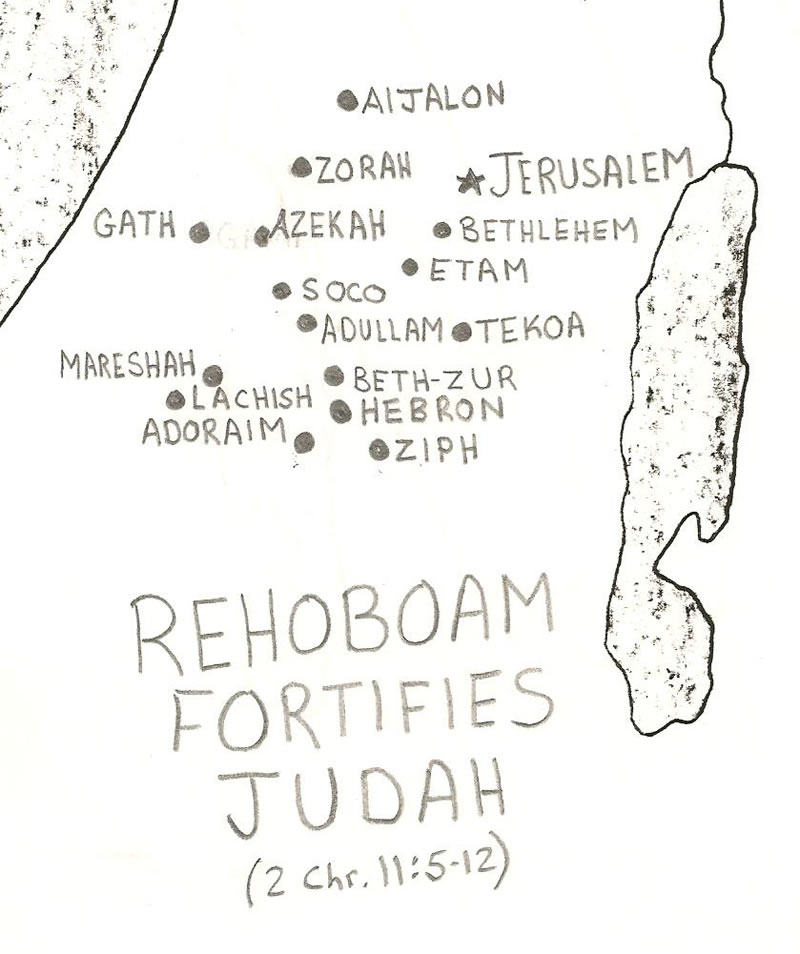 AIJALON
ZORAH
JERUSALEM
GATH
AZEKAH
BETHLEHEM
ETAM
SOCO
ADULLAM
TEKOA
MARESHAH
BETH-ZUR
LACHISH
HEBRON
ADORAIM
ZIPH
REHOBOAM
FORTIFIES
JUDAH
(2 Chr. 11:5-12)